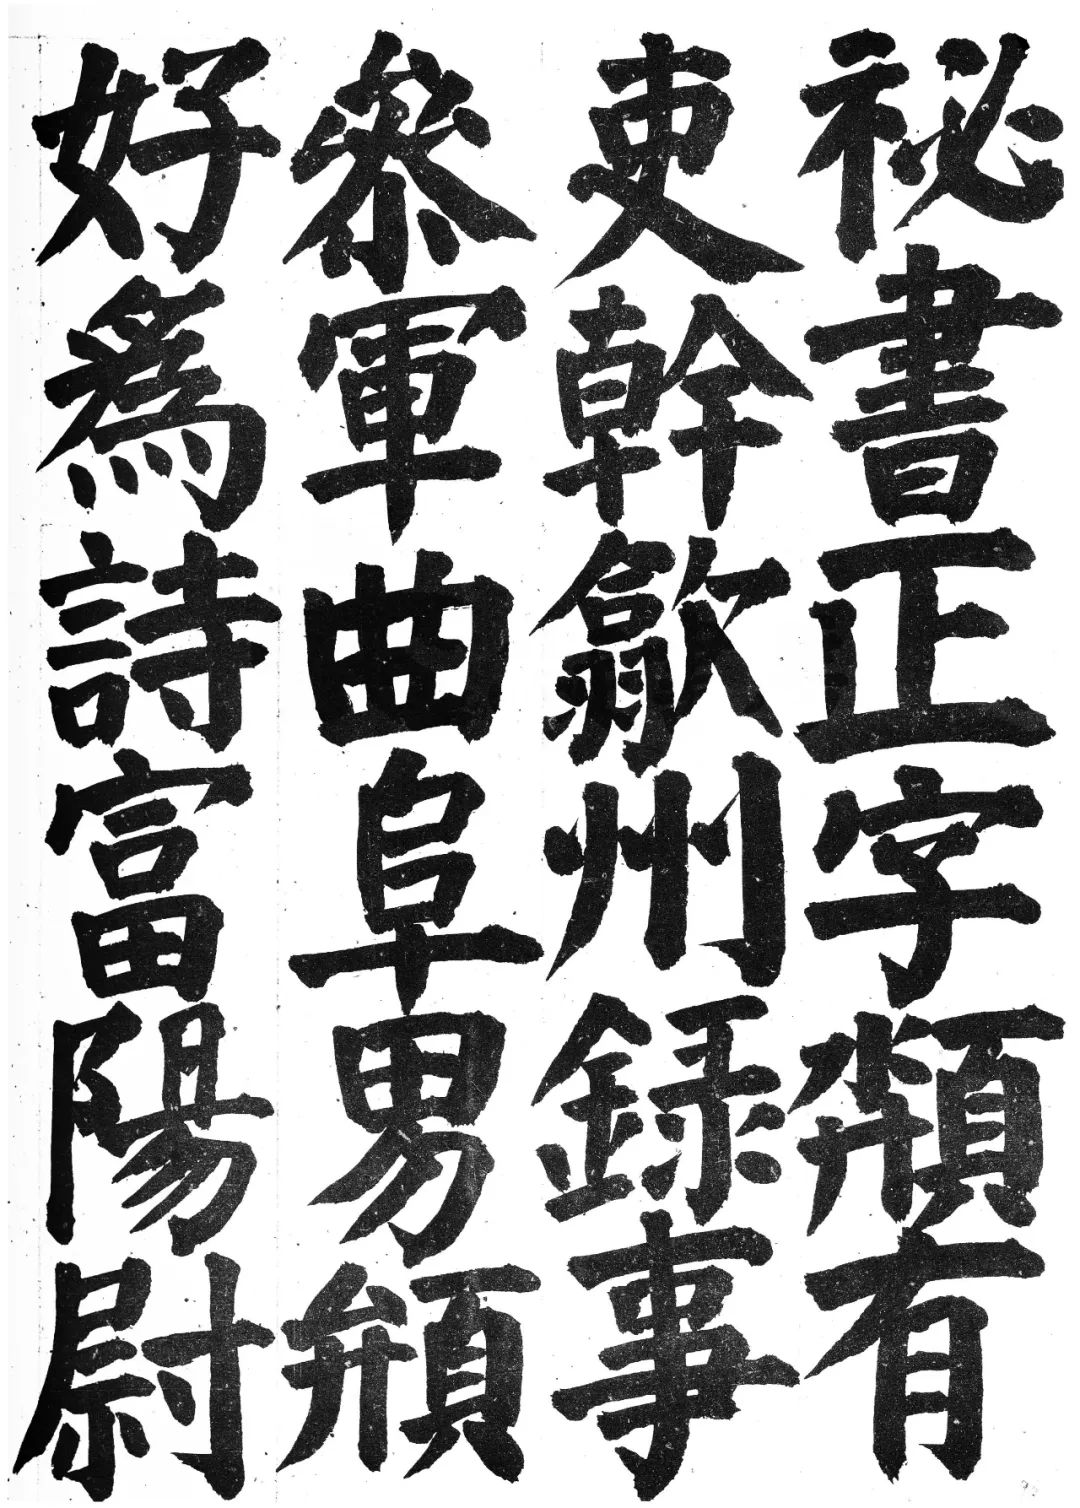 祕書正字有
吏幹歙州録事
參軍曲阜男
好爲詩富陽尉